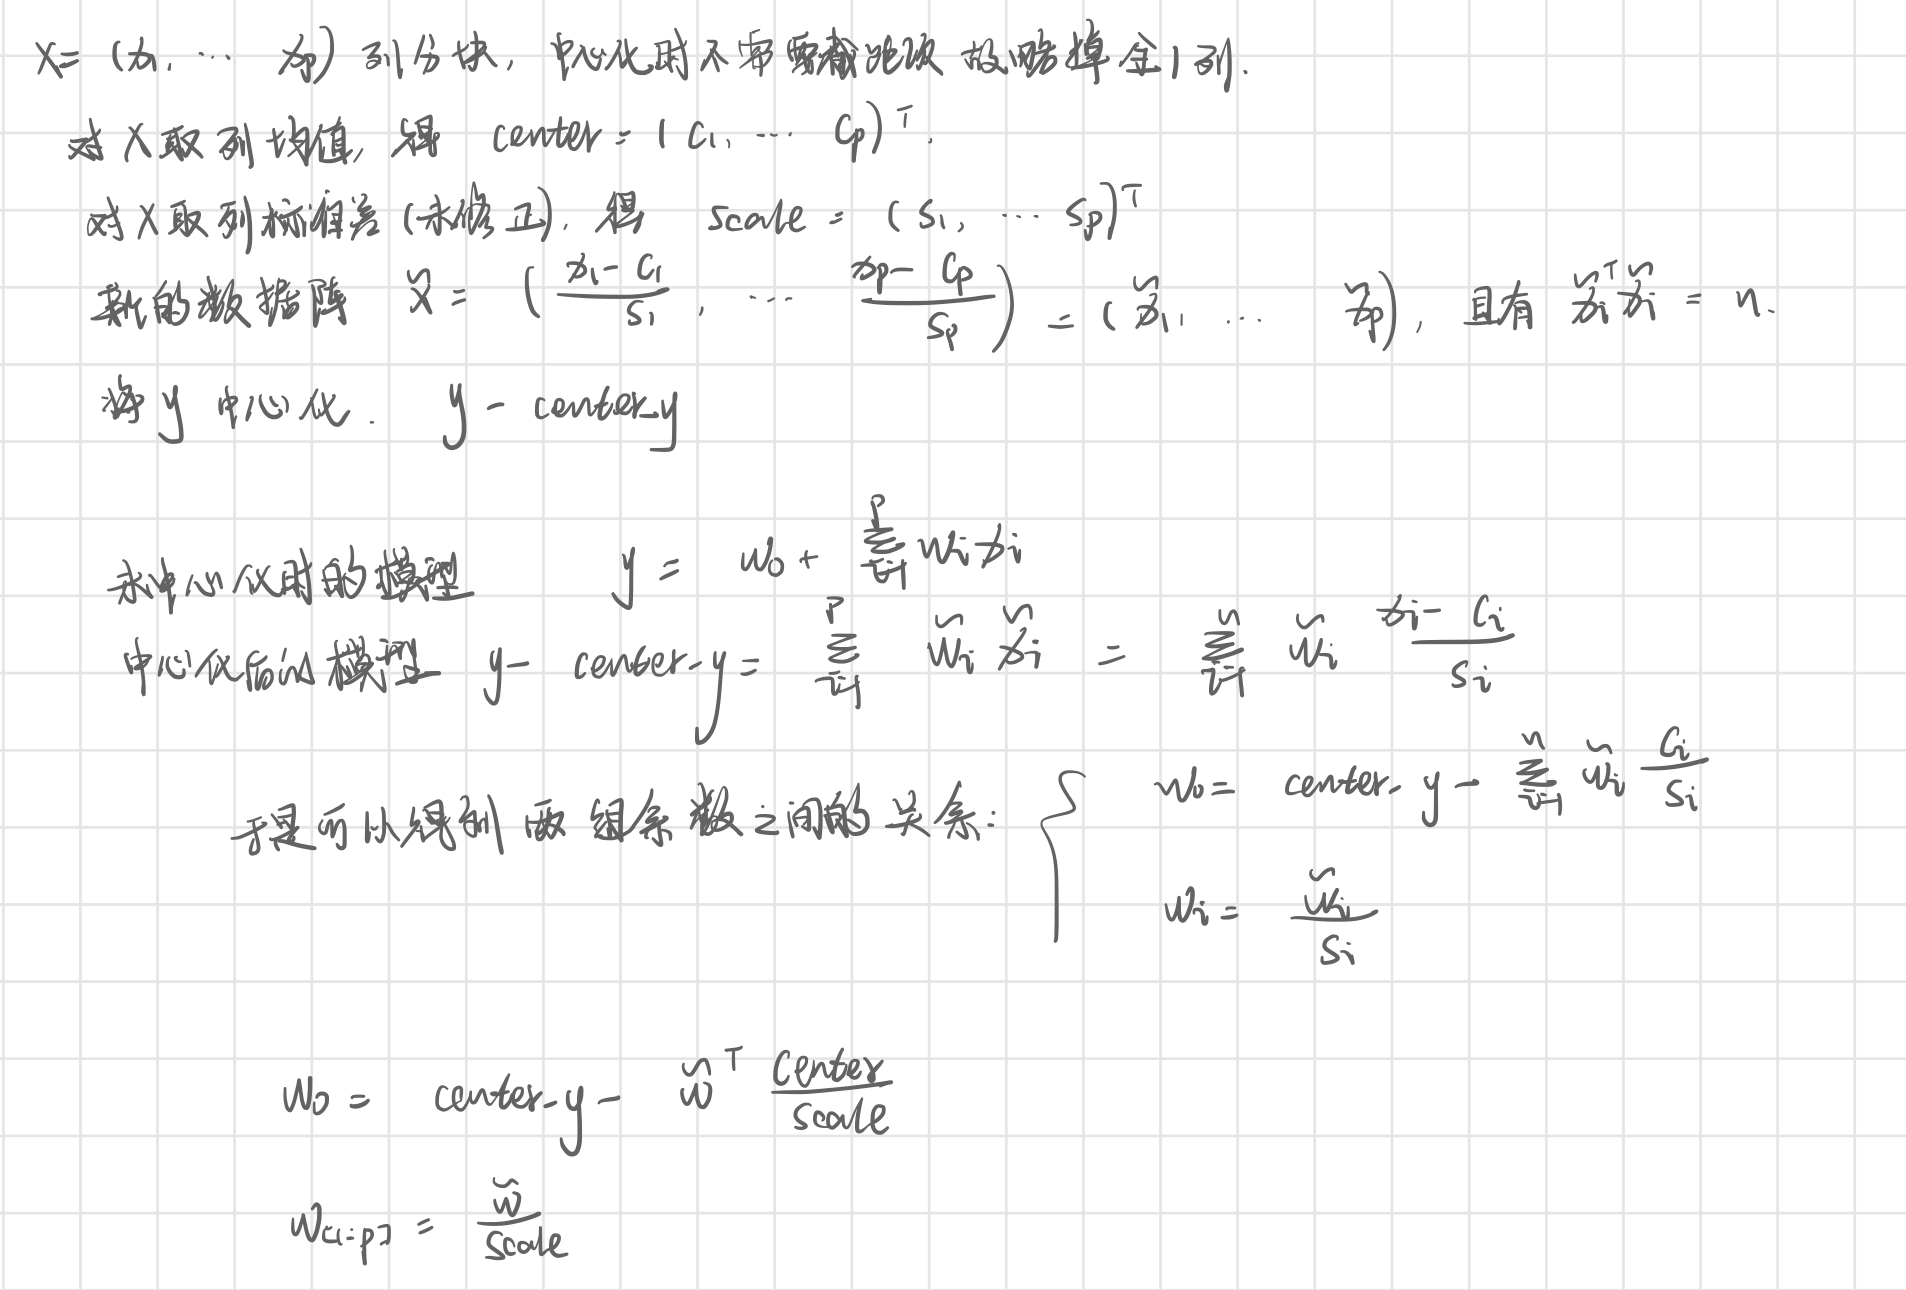 X = (x₁, ⋯ xₚ) 列分块, 中心化时不需要截距项 故略掉全1列.
对X取列均值, 得 center = (c₁, ⋯ cₚ)ᵀ.
对X取列标准差(未修正), 得 scale = (s₁, ⋯ sₚ)ᵀ
新的数据阵 X̃ = ((x₁ - c₁)/s₁, ⋯ (xₚ - cₚ)/sₚ) = (x̃₁, ⋯ x̃ₚ), 且有 x̃ᵢᵀx̃ᵢ = n.
将y中心化. y - center_y
未中心化时的模型 y = w₀ + ∑ᵢ₌₁ᵖ wᵢxᵢ
中心化后的模型 y - center_y = ∑ᵢ₌₁ᵖ w̃ᵢx̃ᵢ = ∑ᵢ₌₁ⁿ w̃ᵢ (xᵢ - cᵢ)/sᵢ
于是可以得到两组系数之间的关系: { w₀ = center_y - ∑ᵢ₌₁ⁿ w̃ᵢ cᵢ/sᵢ
wᵢ = w̃ᵢ/sᵢ
w₀ = center_y - w̃ᵀ center/scale
w[1:p] = w̃/scale